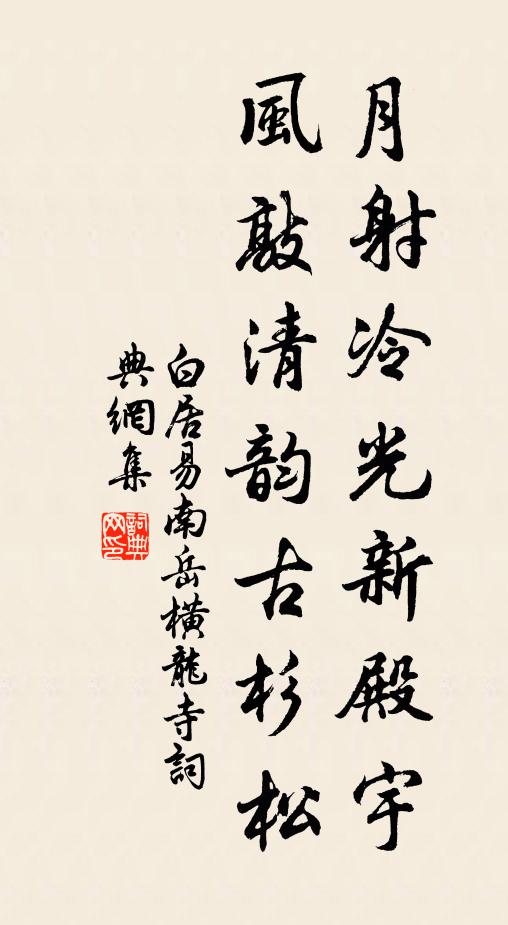 月射冷光新殿宇
風敲清韵古杉松
白居易南岳橫龍寺詞
典網集
詞典
网印